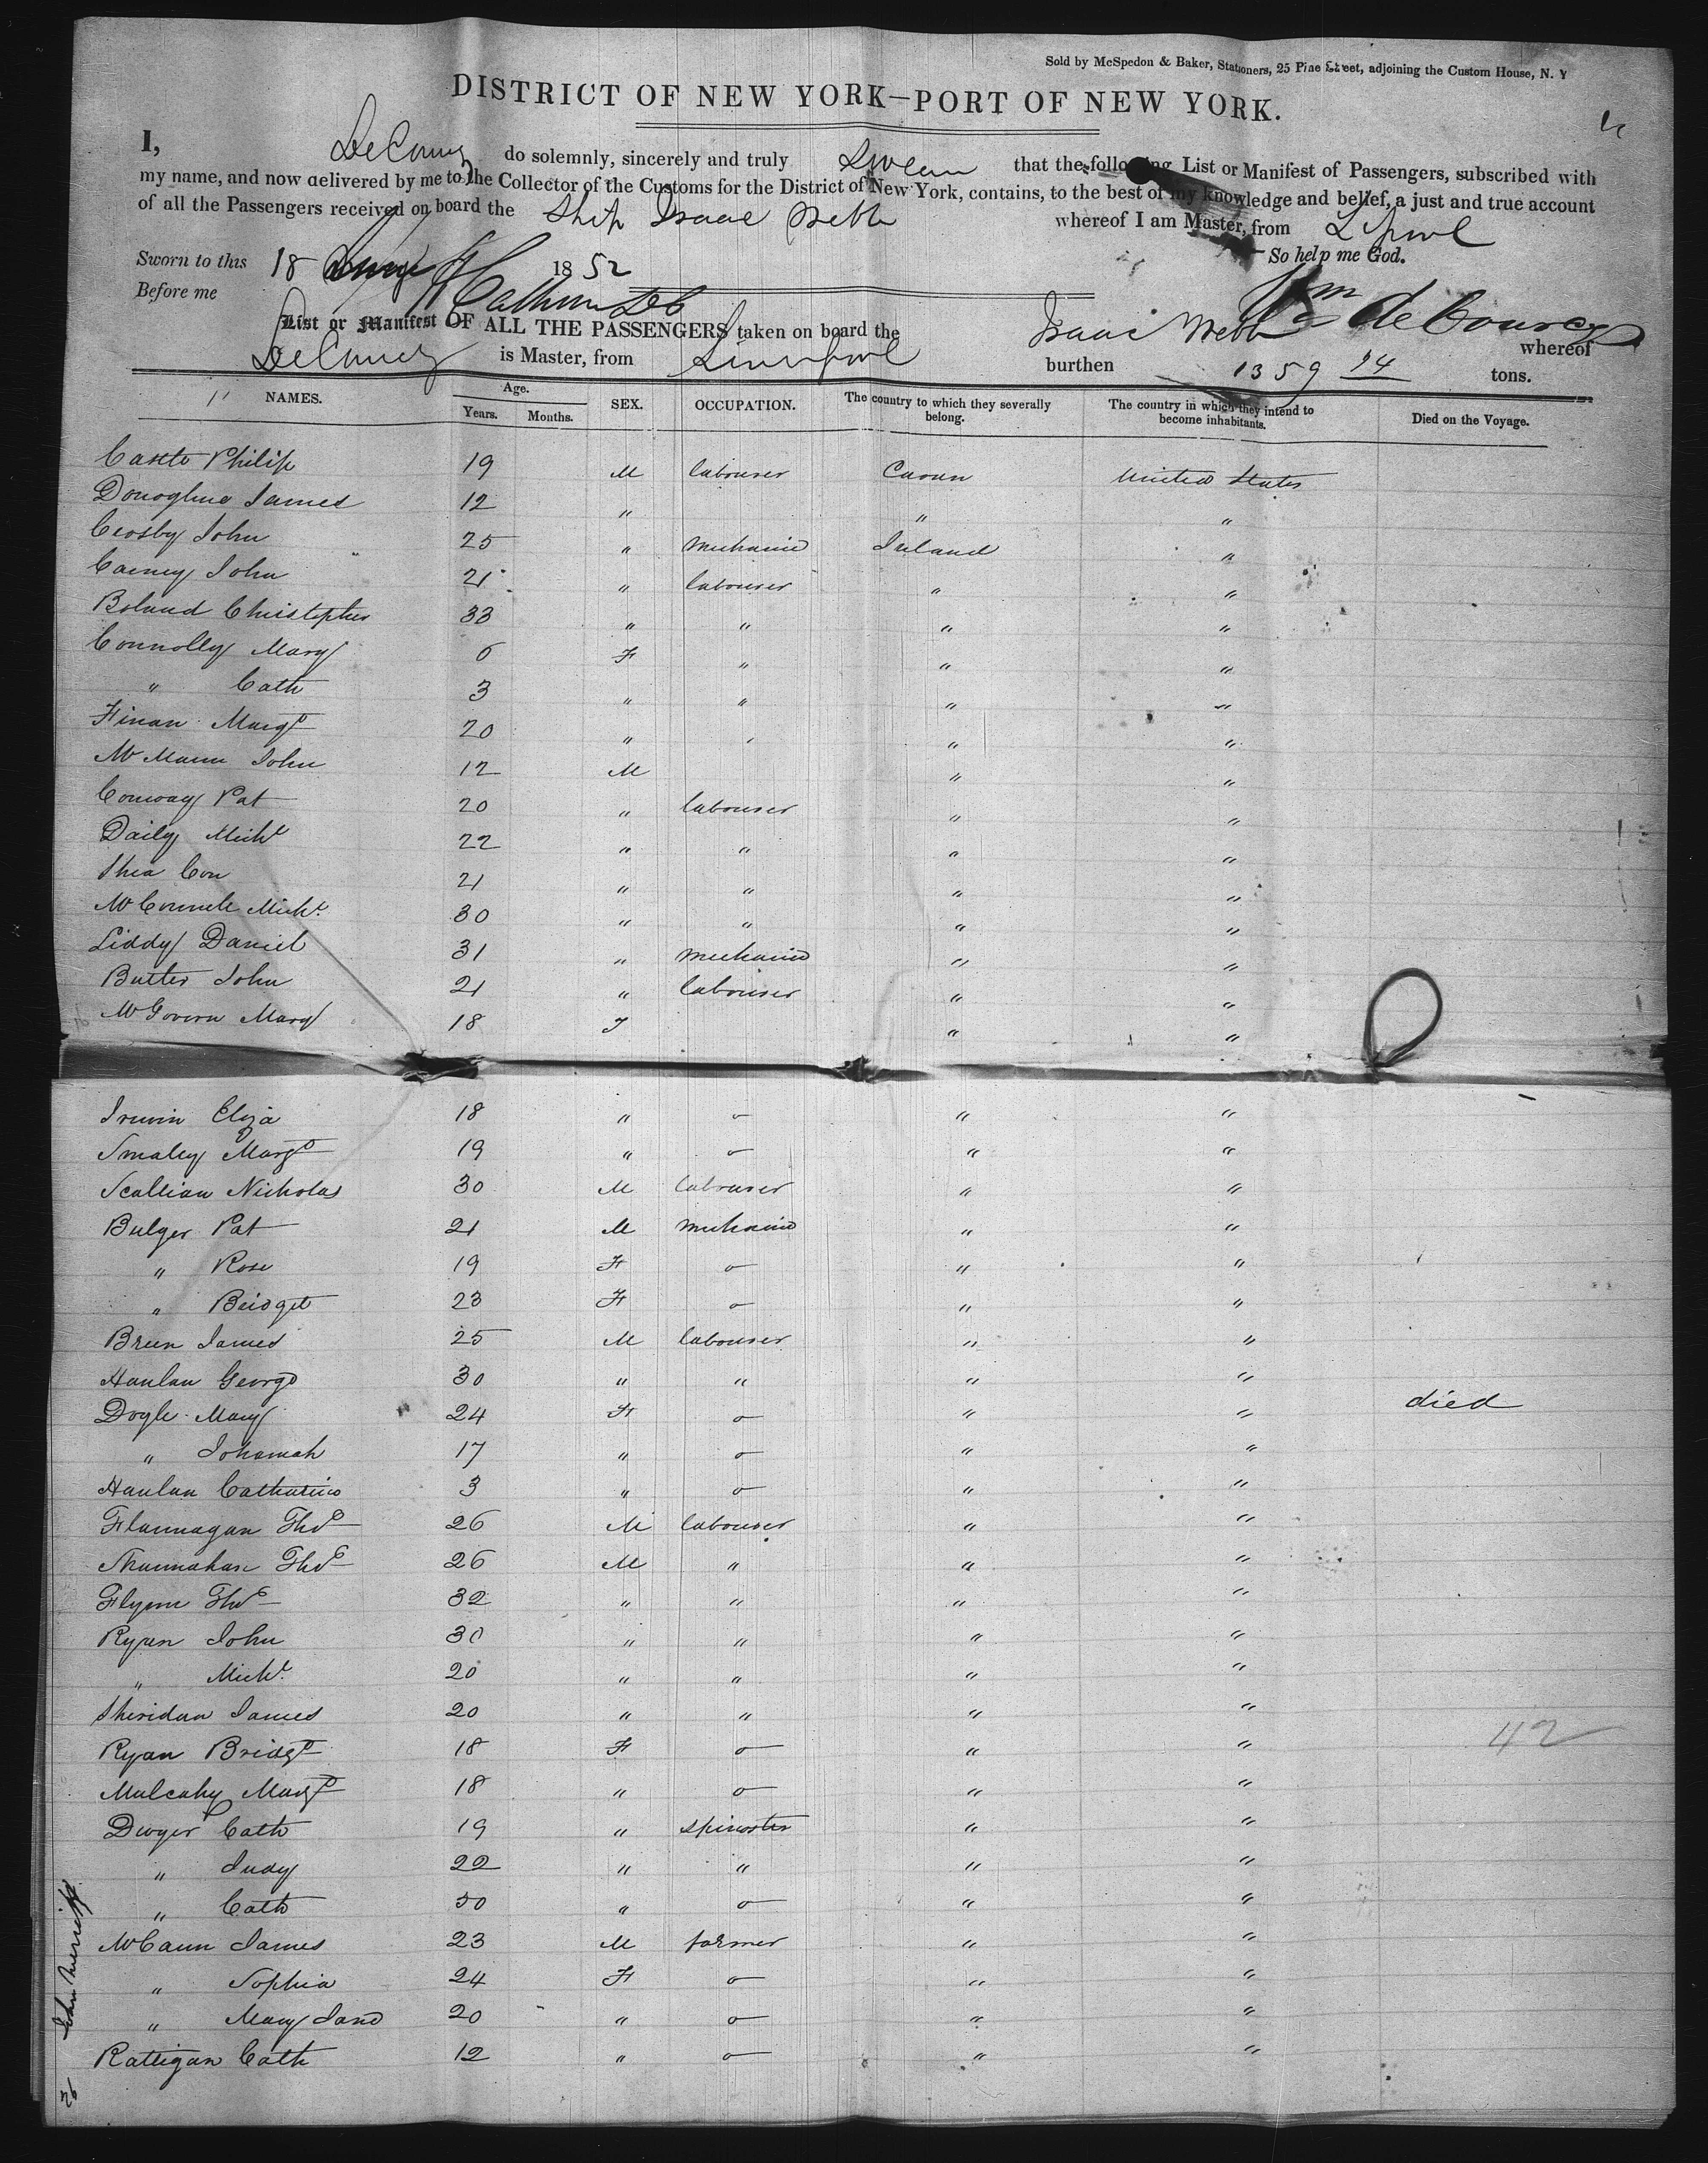 Sold by McSpedon & Baker, Stationers, 25 Pine Street, adjoining the Custom House, N. Y
DISTRICT OF NEW YORK—PORT OF NEW YORK.
I, DeCourcy do solemnly, sincerely and truly swear that the following List or Manifest of Passengers, subscribed with
my name, and now delivered by me to the Collector of the Customs for the District of New York, contains, to the best of my knowledge and belief, a just and true account
of all the Passengers received on board the Ship Isaac Webb whereof I am Master, from L'pool
Sworn to this 18 1852 So help me God.
Before me Wm de Courcy
List or Manifest OF ALL THE PASSENGERS taken on board the Isaac Webb whereof
DeCourcy is Master, from Liverpool burthen 1359 94 tons.
NAMES. Age. Years. Months. SEX. OCCUPATION. The country to which they severally belong. The country in which they intend to become inhabitants. Died on the Voyage.
Philip 19 M labourer Cavan United States
Donoghue James 12 " " "
Crosby John 25 " mechanic Ireland "
Carney John 21 " labourer " "
Boland Christopher 33 " " " "
Connolly Mary 6 F " " "
" Cath 3 " " " "
Finan Margt 20 " " " "
McMann John 12 M " "
Conway Pat 20 " labourer " "
Daily Michl 22 " " " "
Shea Con 21 " " " "
Michl 30 " " " "
Liddy Daniel 31 " mechanic " "
Butler John 21 " labourer " "
McGovern Mary 18 F " "
Irwin Eliza 18 " o " "
Smaley Margt 19 " o " "
Scallian Nicholas 30 M labourer " "
Bulger Pat 21 M mechanic " "
" Rose 19 F o " "
" Bridget 23 F o " "
Breen James 25 M labourer " "
Hanlan George 30 " " " "
Doyle Mary 24 F o " " died
" Johannah 17 " o " "
Hanlan Catharine 3 " o " "
Flannagan Thos 26 M labourer " "
Thos 26 M " " "
Flynn Thos 32 " " " "
Ryan John 30 " " " "
" Michl 20 " " " "
Sheridan James 20 " " " "
Ryan Bridgt 18 F o " " 42
Mulcahy Margt 18 " o " "
Dwyer Cath 19 " spinster " "
" Judy 22 " " " "
" Cath 50 " o " "
McCann James 23 M farmer " "
" Sophia 24 F o " "
" Mary Jane 20 " o " "
Rattigan Cath 12 " o " "